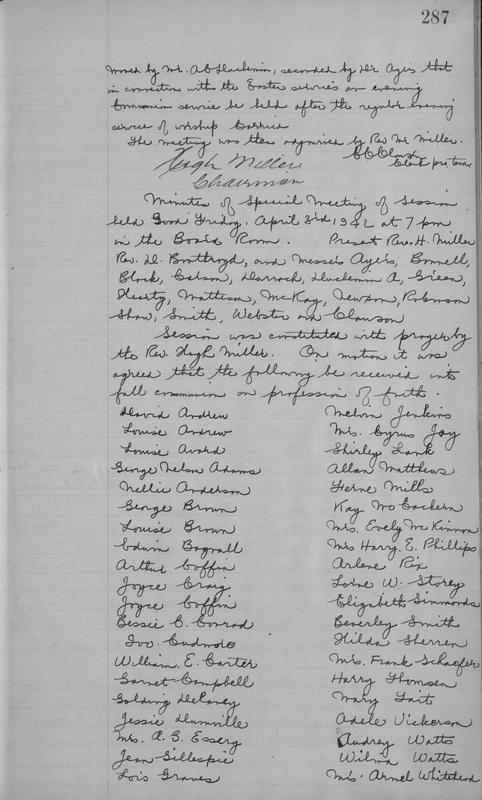 287
moved by Mr. A.C. , seconded by Mr. Ayers that
in connection with the Easter services an evening
Communion service be held after the regular evening
service of worship Carried
The meeting was then adjourned by Rev Mr Miller.
Hugh Miller
Chairman
C C Clawson
Clerk pro tem
Minutes of Special Meeting of Session
held Good Friday, April 3rd 1942 at 7 pm
in the Board Room. Present Rev. H. Miller
Rev. D. Boothroyd, and Messrs Ayers, Bonnell,
Black, Colson, Darrach, A, Green,
Heartz, Matheson, McKay, Newson, Robinson
Shaw, Smith, Webster and Clawson
Session was constituted with prayer by
the Rev. Hugh Miller. On motion it was
agreed that the following be received into
full communion on profession of faith.
David Andrew
Louise Andrew
Louise Avard
George Nelson Adams
Nellie Anderson
George Brown
Louise Brown
Edwin Bagnall
Arthur Coffin
Joyce Craig
Joyce Coffin
Bessie C. Conrad
Ivo Cudmore
William E. Carter
Garnet Campbell
Golding DeLaney
Jessie Dumville
Mrs. A. B. Essery
Jean Gillespie
Lois Graves
Melvin Jenkins
Mrs. Cyrus Jay
Shirley Lank
Allan Matthews
Ferne Mills
Kay McEachern
Mrs. Evely McKinnon
Mrs Harry. E. Phillips
Arlene Pix
Lorne W. Storey
Elizabeth Simmonds
Beverley Smith
Hilda Sherren
Mrs. Frank Schaefer
Harry Thomson
Mary Tait
Adele Vickerson
Audrey Watts
Wilma Watts
Mrs. Arnel Whitehead